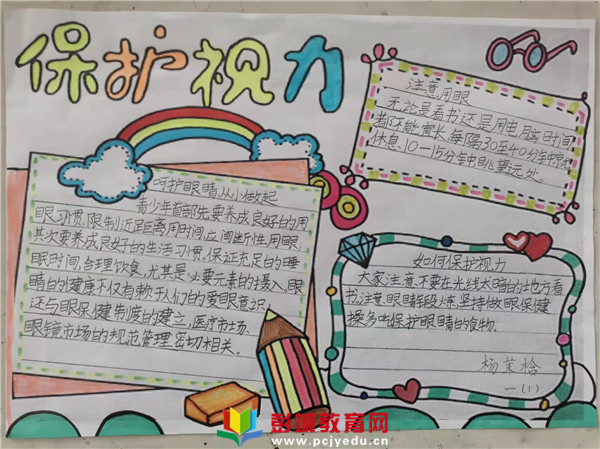 保护视力
注意用眼
无论是看书还是用电脑时间
都不能需长,每隔30至40分钟需
休息10一15分钟或眺望远处。
呵护眼睛,从小做起
青少年首先要养成良好的用
眼习惯,限制近距离用时间,应间断性用眼,
其次要养成良好的生活习惯,保证充足的睡
眠时间,合理饮食,尤其是必要元素的摄入,眼
睛的健康不仅有赖于人们的爱眼意识,
还与眼保健制度的建立,医疗市场、
眼镜市场的规范管理密切相关。
如何保护视力
大家注意不要在光线太暗的地方看
书,注意眼睛锻炼,坚持做眼保健
操,多吃保护眼睛的食物。
杨
一(1)
彭城教育网
www.pcjyedu.cn